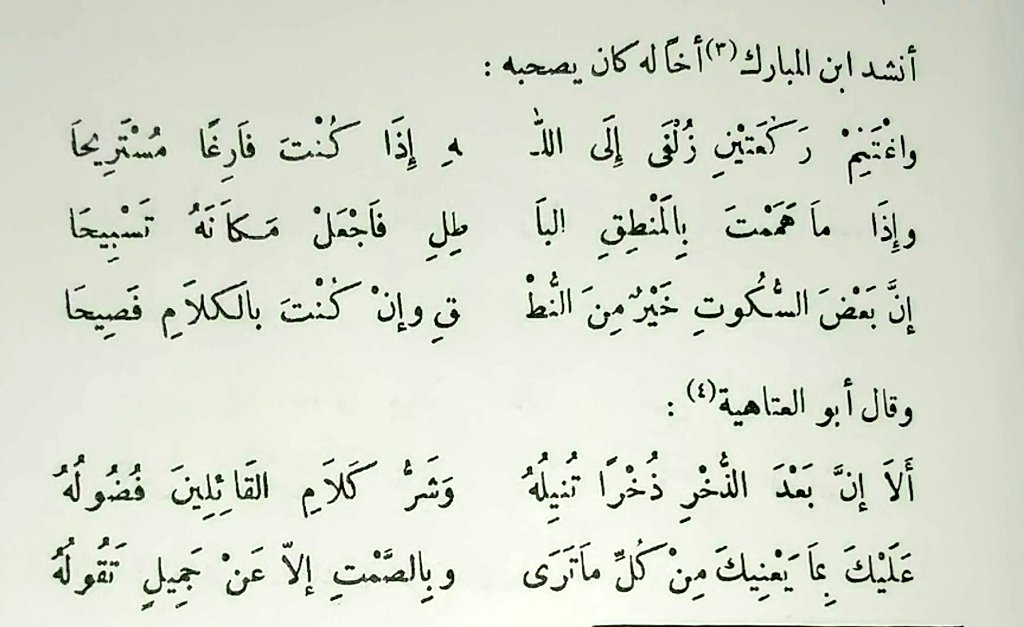 أنشد ابن المبارك(٣) أخاً له كان يصحبه :
واغْتَنِمْ رَكْعَتَيْنِ زُلْفَى إِلَى اللّٰـ ـهِ إِذَا كُنْتَ فَارِغًا مُسْتَرِيحَا
وإِذَا مَا هَمَمْتَ بِالمَنْطِقِ البَا طِلِ فَاجْعَلْ مَكَانَهُ تَسْبِيحَا
إِنَّ بَعْضَ السُّكُوتِ خَيْرٌ مِنَ النُّطْ قِ وإِنْ كُنْتَ بالكَلاَمِ فَصِيحَا
وقال أبو العتاهية(٤) :
أَلاَ إِنَّ بَعْدَ الذُّخْرِ ذُخْرًا تُنِيلُهُ وَشَرُّ كَلاَمِ القَائِلِينَ فُضُولُهُ
عَلَيْكَ بِمَا يَعْنِيكَ مِنْ كُلِّ مَا تَرَى وبِالصَّمْتِ إلاّ عَنْ جَمِيلٍ تَقُولُهُ